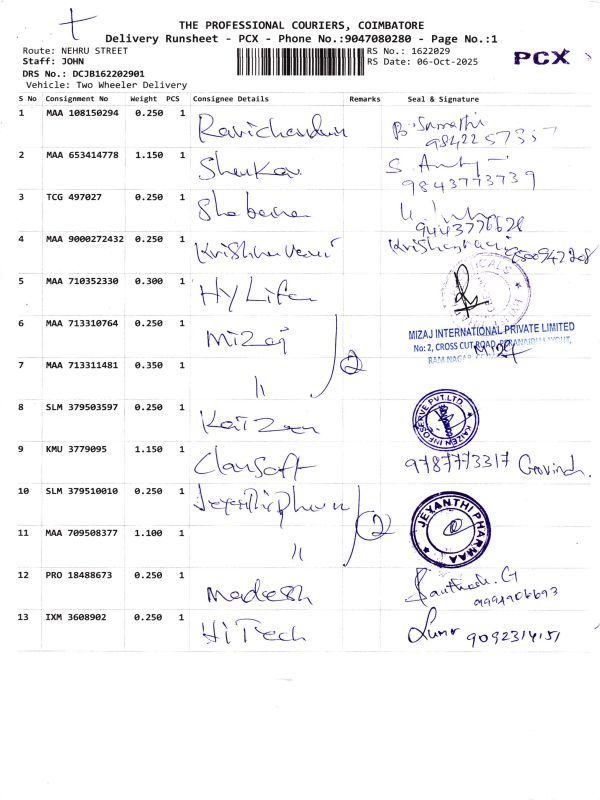 THE PROFESSIONAL COURIERS, COIMBATORE
Delivery Runsheet - PCX - Phone No.:9047080280 - Page No.:1
Route: NEHRU STREET RS No.: 1622029
Staff: JOHN RS Date: 06-Oct-2025
PCX
DRS No.: DCJB162202901
Vehicle: Two Wheeler Delivery
S No Consignment No Weight PCS Consignee Details Remarks Seal & Signature
1 MAA 108150294 0.250 1
2 MAA 653414778 1.150 1
9843773739
3 TCG 497027 0.250 1
4 MAA 9000272432 0.250 1
5 MAA 710352330 0.300 1 HyLife
6 MAA 713310764 0.250 1 Mizaj
MIZAJ INTERNATIONAL PRIVATE LIMITED
No: 2, CROSS CUT ROAD,
RAM NAGAR,
7 MAA 713311481 0.350 1 〃 2
8 SLM 379503597 0.250 1 Kaizen
KAIZEN INFOSERVE PVT.LTD
9 KMU 3779095 1.150 1 9787773317 Govind.
10 SLM 379510010 0.250 1
JEYANTHI PHARMAA
11 MAA 709508377 1.100 1 〃 2
12 PRO 18488673 0.250 1 Madesh
13 IXM 3608902 0.250 1 HiTech
9092314151